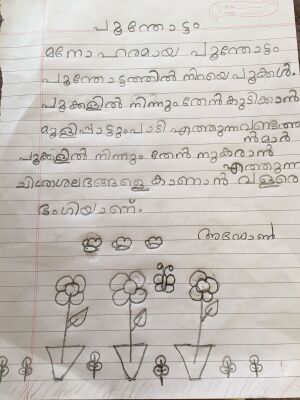 പൂന്തോട്ടം
മനോഹരമായ പൂന്തോട്ടം
പൂന്തോട്ടത്തിൽ നിറയെ പൂക്കൾ.
പൂക്കളിൽ നിന്നും തേൻകുടിക്കാൻ
മൂളിപ്പാട്ടുംപാടി എത്തുന്നവണ്ടത്താ
ൻമാർ
പൂക്കളിൽ നിന്നും തേൻ നുകരാൻ
എത്തുന്ന
ചിത്രശലഭങ്ങളെ കാണാൻ വളരെ
ഭംഗിയാണ്.